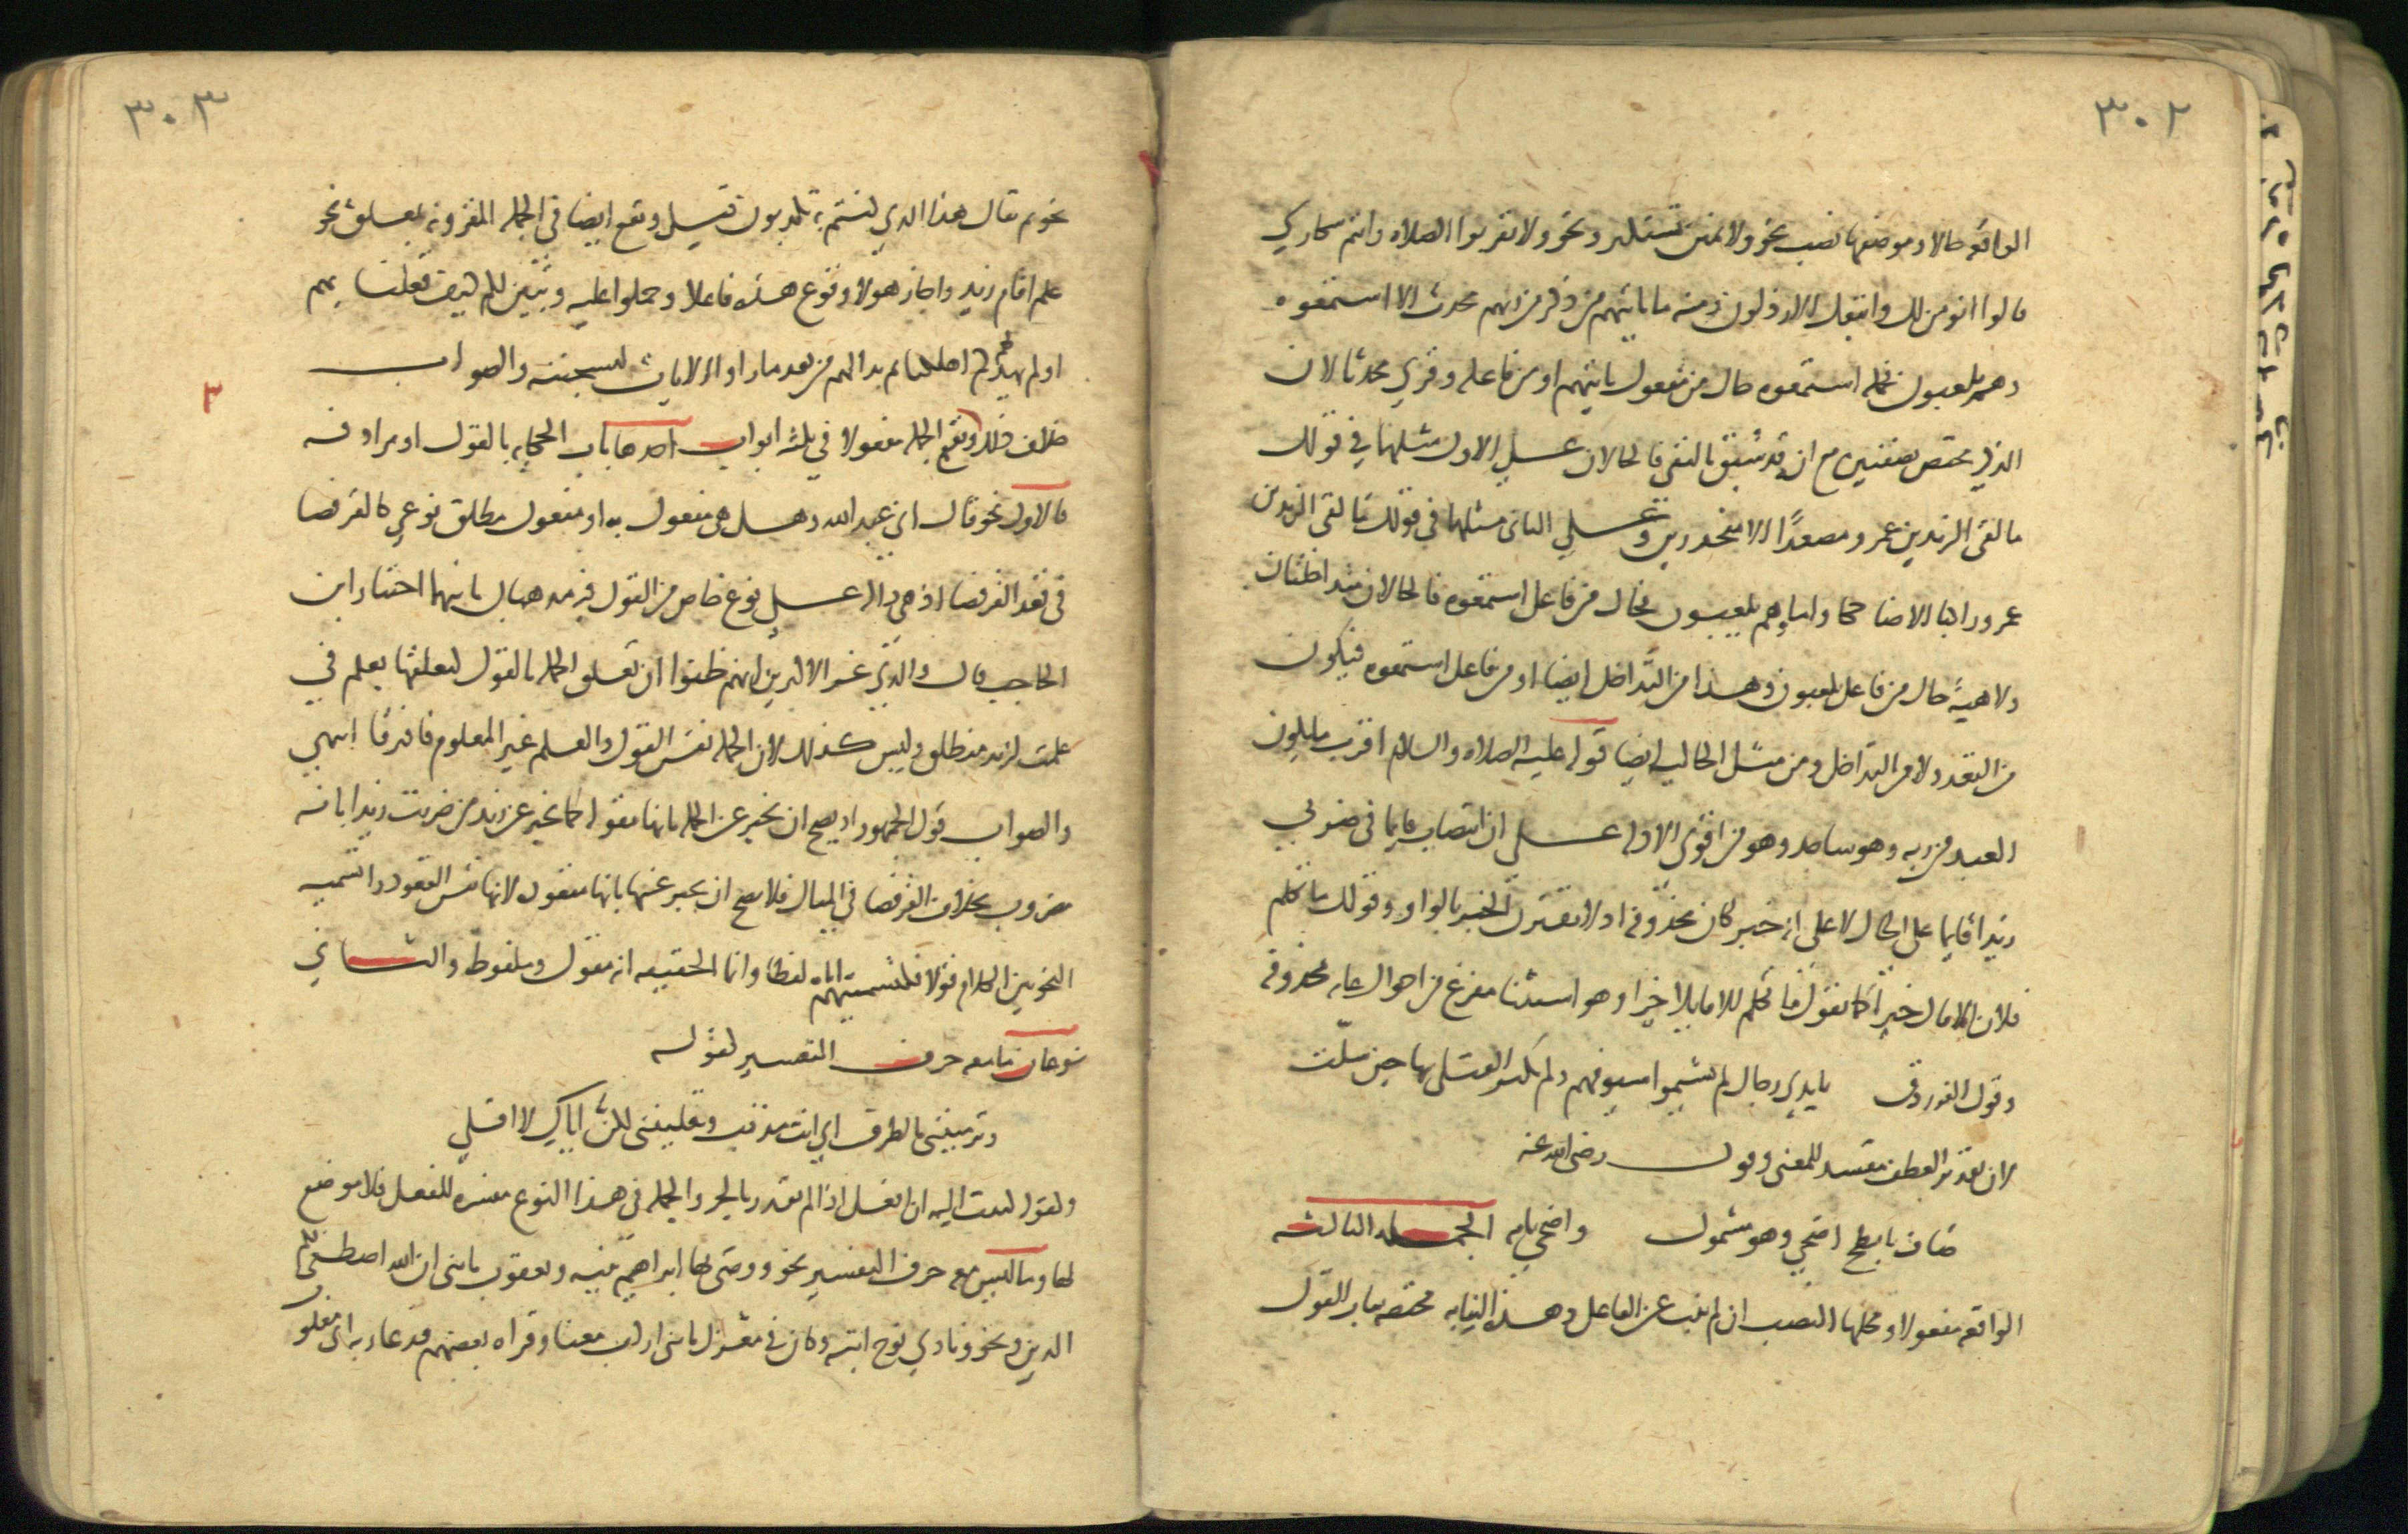 ٣٠٢
الواقعه حالا وموضعها نصب نحو ولا تمنن تستكثر ونحو ولا تقربوا الصلاه وانتم سكاري
قالوا انومن لك واتبعك الارذلون ومنه ما ياتيهم من ذكر من ربهم محدث الا استمعوه
وهم يلعبون فجمله استمعوه حال من مفعول ياتيهم او من فاعله وقري محدثا لان
الذكر مختص بصفتيه مع انه قد سبق بالنفي فالحالان على الاول مثلهما في قولك
ما لقي الزيدين عمرو مصعدًا الا منحدرين وعلي الثاني مثلهما في قولك ما لقي الزيدين
عمرو راكبا الا ضاحكا واما وهم يلعبون فحال من فاعل استمعوه فالحالان متداخلتان
ولاهيةً حال من فاعل يلعبون وهذا من التداخل ايضا او من فاعل استمعوه فيكون
من التعدد لا من التداخل ومن مثل الحاليه ايضا قوله عليه الصلاه والسلام اقرب ما يكون
العبد من ربه وهو ساجد وهو من اقوي الادله على ان انتصاب قايما في ضربي
زيدا قايما على الحال لا على انه خبر كان محذوفه اذ لا يقترن الخبر بالواو وقولك ما تكلم
فلان الا قال خيرا كما تقول ما تكلم الا قايلا خيرا وهو استثنا مفرغ من احوال عامه محذوفه
وقول الفرزدق بايدي رجال لم يشيموا سيوفهم ولم تكثر القتلى بها حين سلّت
لان تقدير العطف مفسد للمعنى وقول رضي الله عنه
صاف بابطح اضحي وهو مشمول واضحي تامه الجمله الثالثه
الواقعه مفعولا ومحلها النصب ان لم تنب عن الفاعل وهذه النيابه مختصه بباب القول
٣٠٣
نحو ثم يقال هذا الذي كنتم به تكذبون قيل وتقع ايضا في الجمله المقرونه بمعلق نحو
علم اقام زيد واجاز هولا وقوع هذه فاعلا وحملوا عليه وتبين لكم كيف فعلنا بهم
اولم يهد لهم كم اهلكنا ثم بدا لهم من بعد ما راوا الايات ليسجننه والصواب
٣
خلاف ذلك وتقع الجمله مفعولا في ثلثه ابواب احدها باب الحكايه بالقول او مرادفه
فالاول نحو قال اني عبد الله وهل هي مفعول به او مفعول مطلق نوعي كالقرفصا
في قعد القرفصا اذ هي داله على نوع خاص من القول فيه مذهبان ثانيهما اختيار ابن
الحاجب قال والذي غر الاكثرين انهم ظنوا ان تعلق الجمله بالقول كتعلقها بعلم في
علمت لزيد منطلق وليس كذلك لان الجمله نفس القول والعلم غير المعلوم فافترقا انتهي
والصواب قول الجمهور اذ يصح ان يخبر عن الجمله بانها مقوله كما يخبر عن زيد من ضربت زيدا بانه
مضروب بخلاف القرفصا في المثال فلا يصح ان يخبر عنها بانها مفعول لانها نفس القعود واما تسميه
النحويين الكلام قولا فكتسميتهم اياه لفظا وانما الحقيقه انه مقول وملفوظ والثاني
نوعان ما معه حرف التفسير كقوله
وترمينني بالطرف اي انت مذنب وتقلينني لكنّ اياك لا اقلي
وكقولك كتبت اليه ان افعل اذا لم تقدر بالجر والجمله في هذا النوع مفسره للفعل فلا موضع
لها وما ليس معه حرف التفسير نحو ووصى بها ابراهيم بنيه ويعقوب يا بني ان الله اصطفى لكم
الدين ونحو ونادي نوح ابنه وكان في معزل يا بني اركب معنا وقراه بعضهم فدعا ربه اني مغلوب